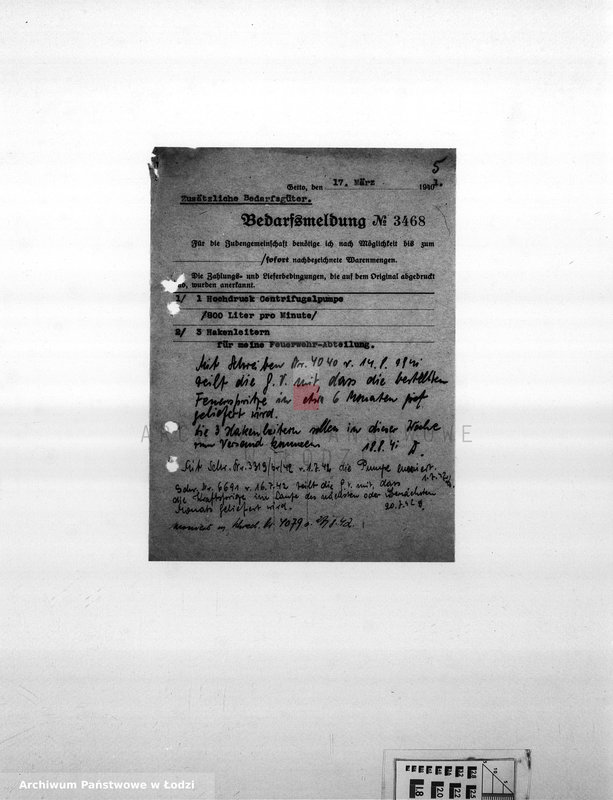 5
Getto, den 17. März 1941.
Zusätzliche Bedarfsgüter.
Bedarfsmeldung № 3468
Für die Judengemeinschaft benötige ich nach Möglichkeit bis zum
/sofort nachbezeichnete Warenmengen.
Die Zahlungs- und Lieferbedingungen, die auf dem Original abgedruckt
wurden anerkannt.
1/ 1 Hochdruck Centrifugalpumpe
/800 Liter pro Minute/
2/ 3 Hakenleitern
für meine Feuerwehr-Abteilung.
Mit Schreiben Nr. 4040 v. 14.8.1941
teilt die G.V. mit, dass die bestellten
Feuerspritze in etwa 6 Monaten
geliefert wird.
Die 3 Hakenleitern sollen in dieser Woche
zum Versand kommen. 18.8.41
Mit Schr. Nr. 3319/ /42 v. 1.7.42 die Pumpe moniert.
1.7.42
Schr. Nr. 6691 v. 16.7.42 teilt die G.V. mit, dass
die Kraftspritze im Laufe des nächsten oder übernächsten
Monats geliefert wird. 20.7.42
moniert m. Schreib. Nr 4079 v.
ARCHIWUM PAŃSTWOWE
W ŁODZI
Archiwum Państwowe w Łodzi
1.8 2.0 2.2 2.5